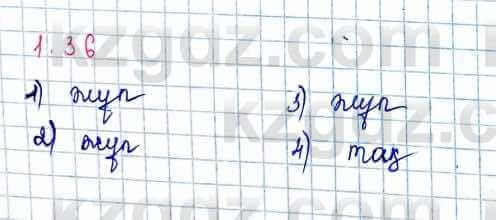 1.36
1) жұп
2) жұп
3) жұп
4) тақ
kzgdz.com